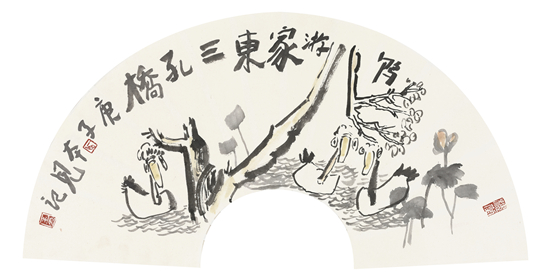 游家東三孔橋庚子見記